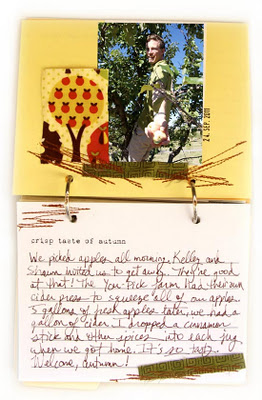 24. SEP. 2011
crisp taste of autumn
We picked apples all morning. Kelley and
Shawn invited us to get away. They're good
at that! The You-Pick farm had their own
cider press to squeeze all of our apples.
5 gallons of fresh apples later, we had a
gallon of cider. I dropped a cinnamon
stick and other spices into each jug
when we got home. It's so tasty.
Welcome, autumn!